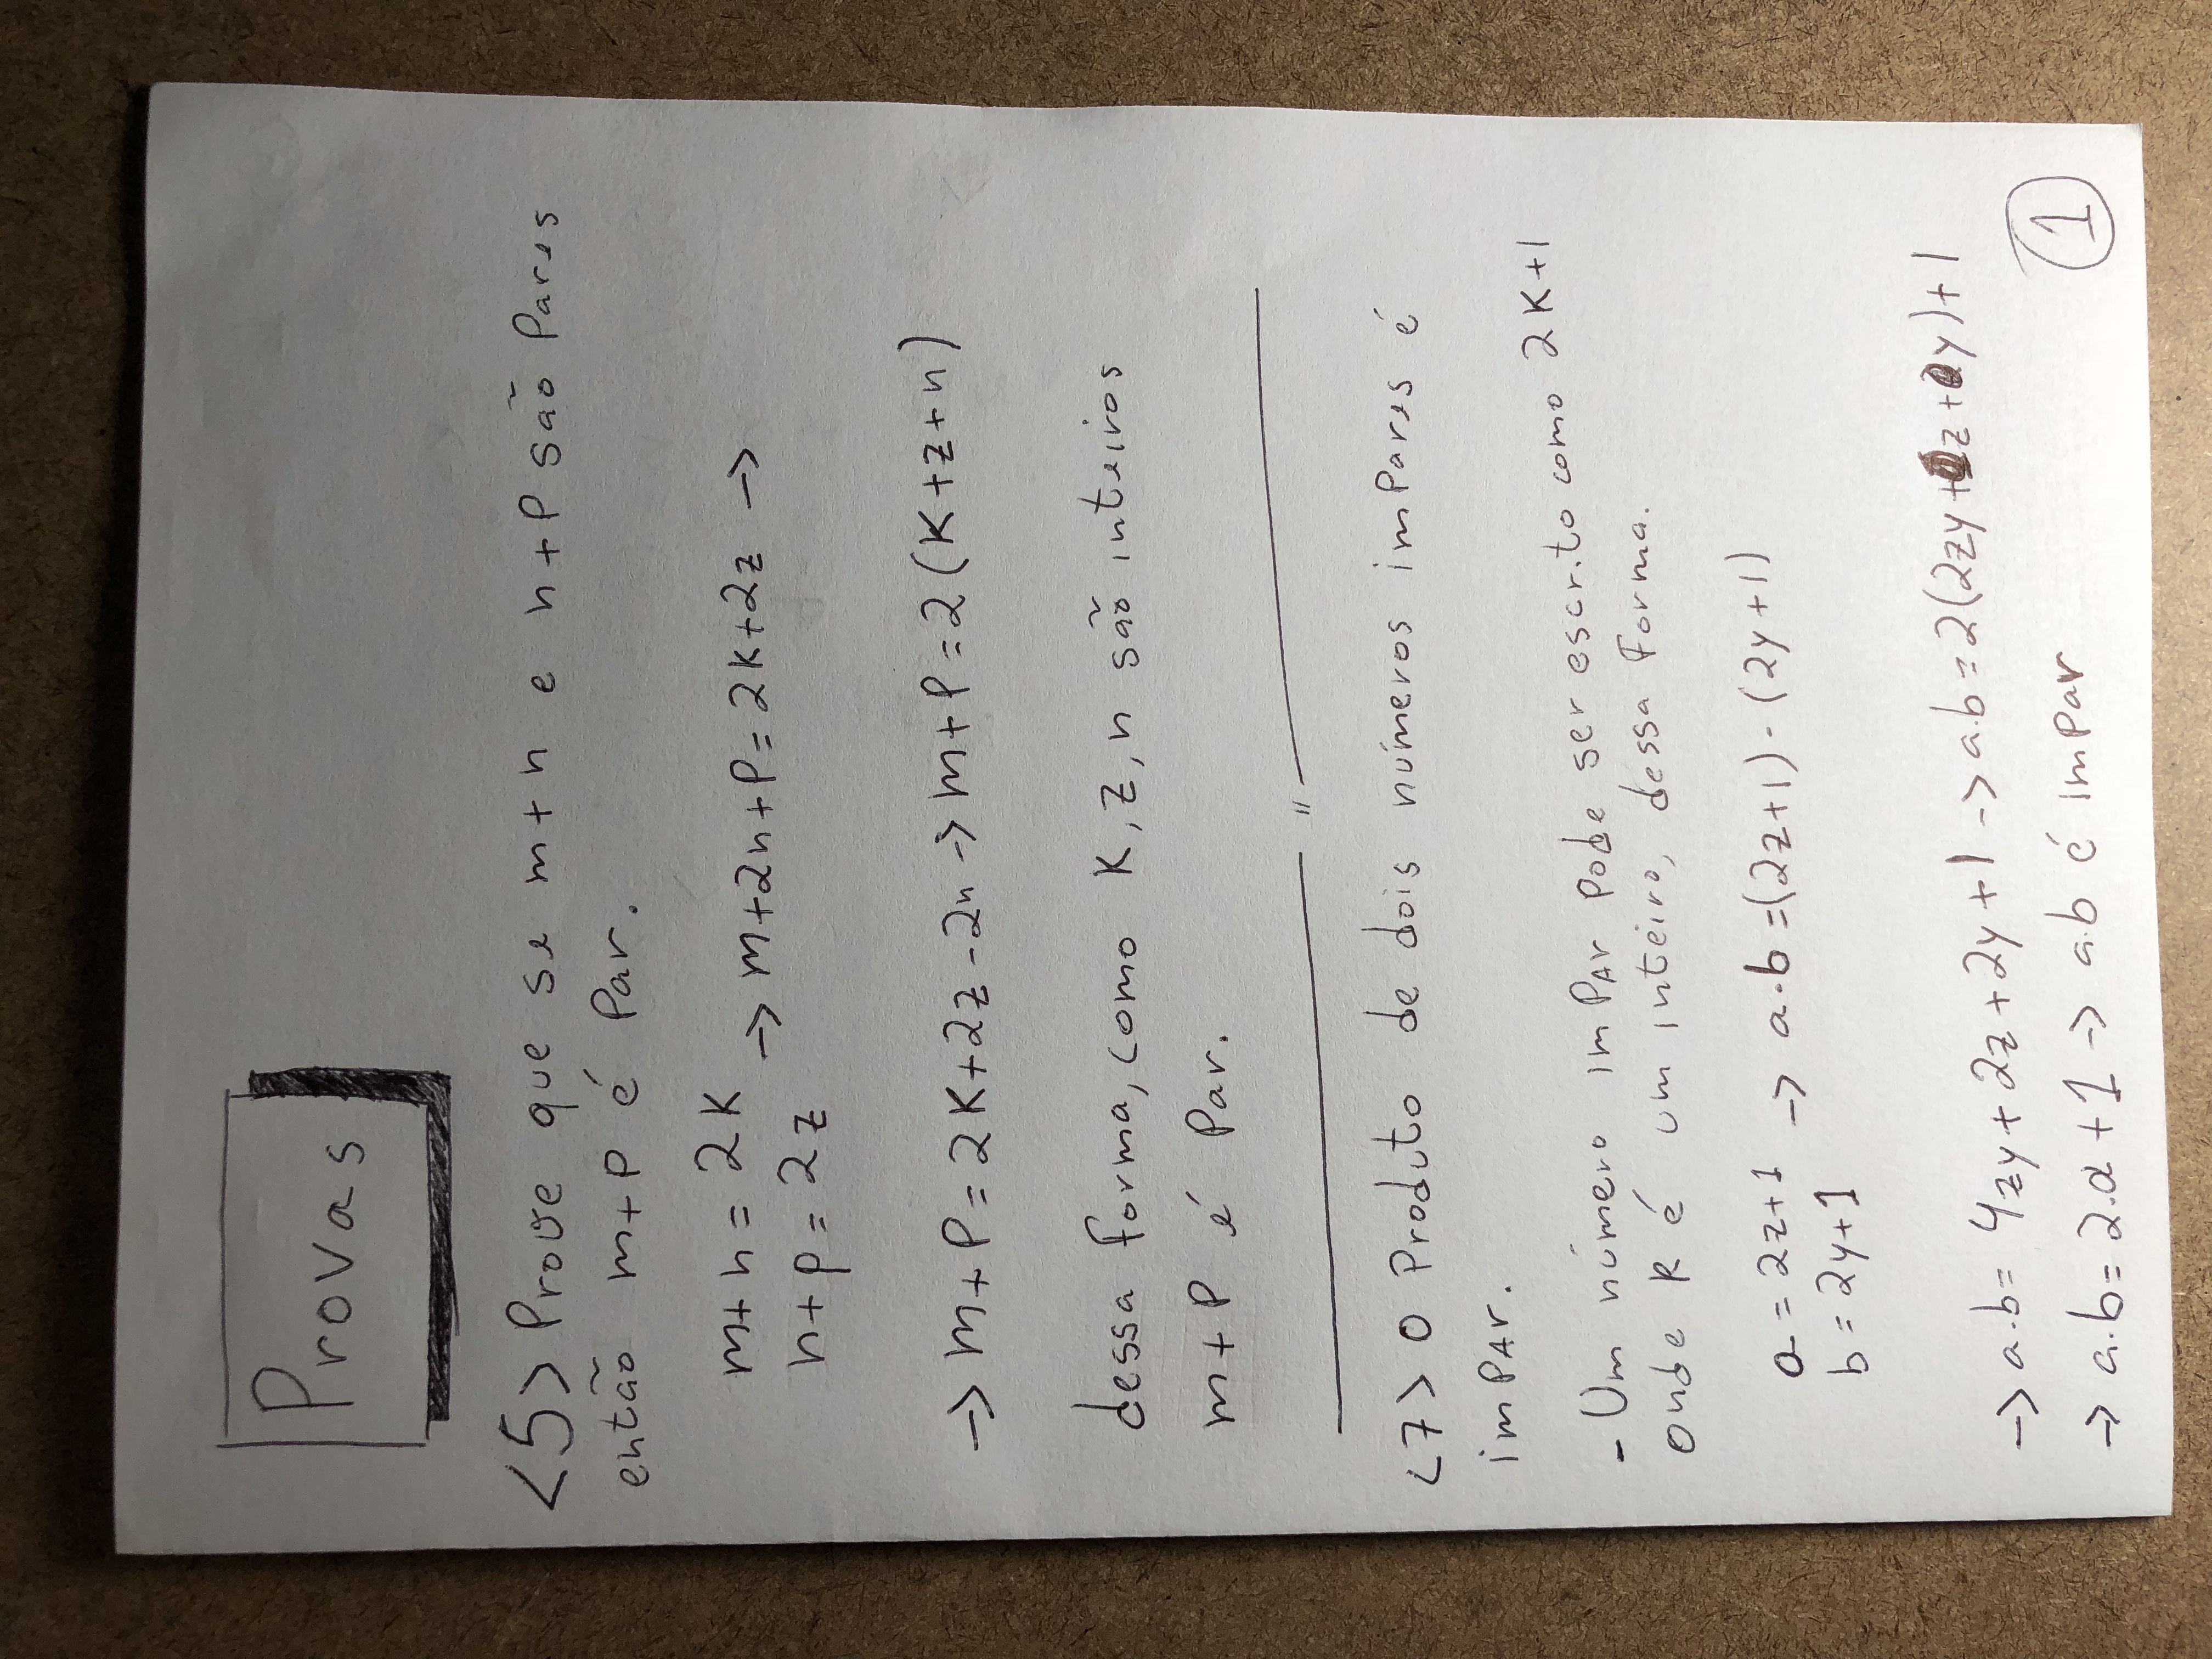 Provas
<5> Prove que se m+n e n+p são pares
então m+p é par.
m+n = 2K
→ m+2n+p = 2K+2z →
n+p = 2z
→ m+p = 2K+2z-2n → m+p = 2(K+z+n)
dessa forma, como K, z, n são inteiros
m+p é par.
"
<7> O produto de dois números impares é
impar.
- Um número impar pode ser escrito como 2K+1
onde K é um inteiro, dessa forma.
a = 2z+1 → a.b = (2z+1).(2y+1)
b = 2y+1
→ a.b = 4zy + 2z + 2y + 1 → a.b = 2(2zy + z + y) + 1
→ a.b = 2.α + 1 → a.b é impar
1